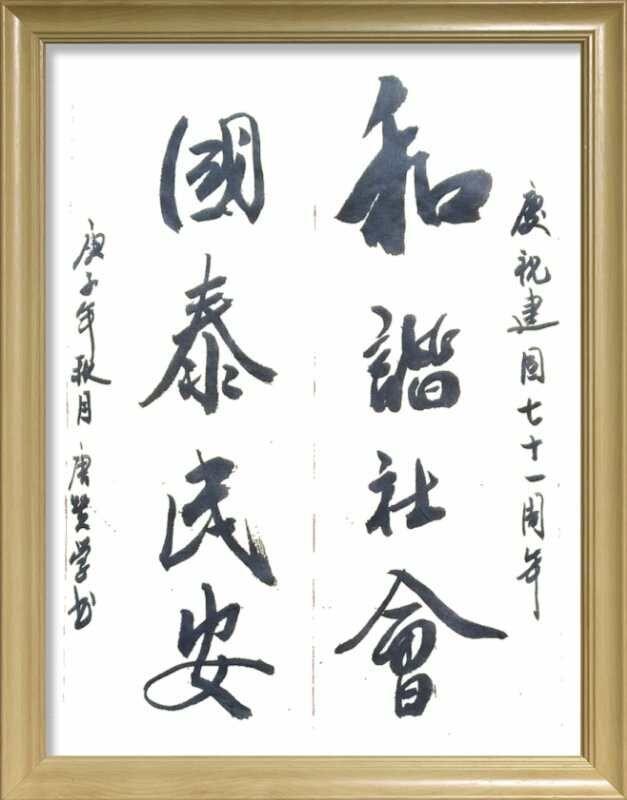 慶祝建国七十一周年
和諧社會
國泰民安
庚子年秋月 唐贊学书